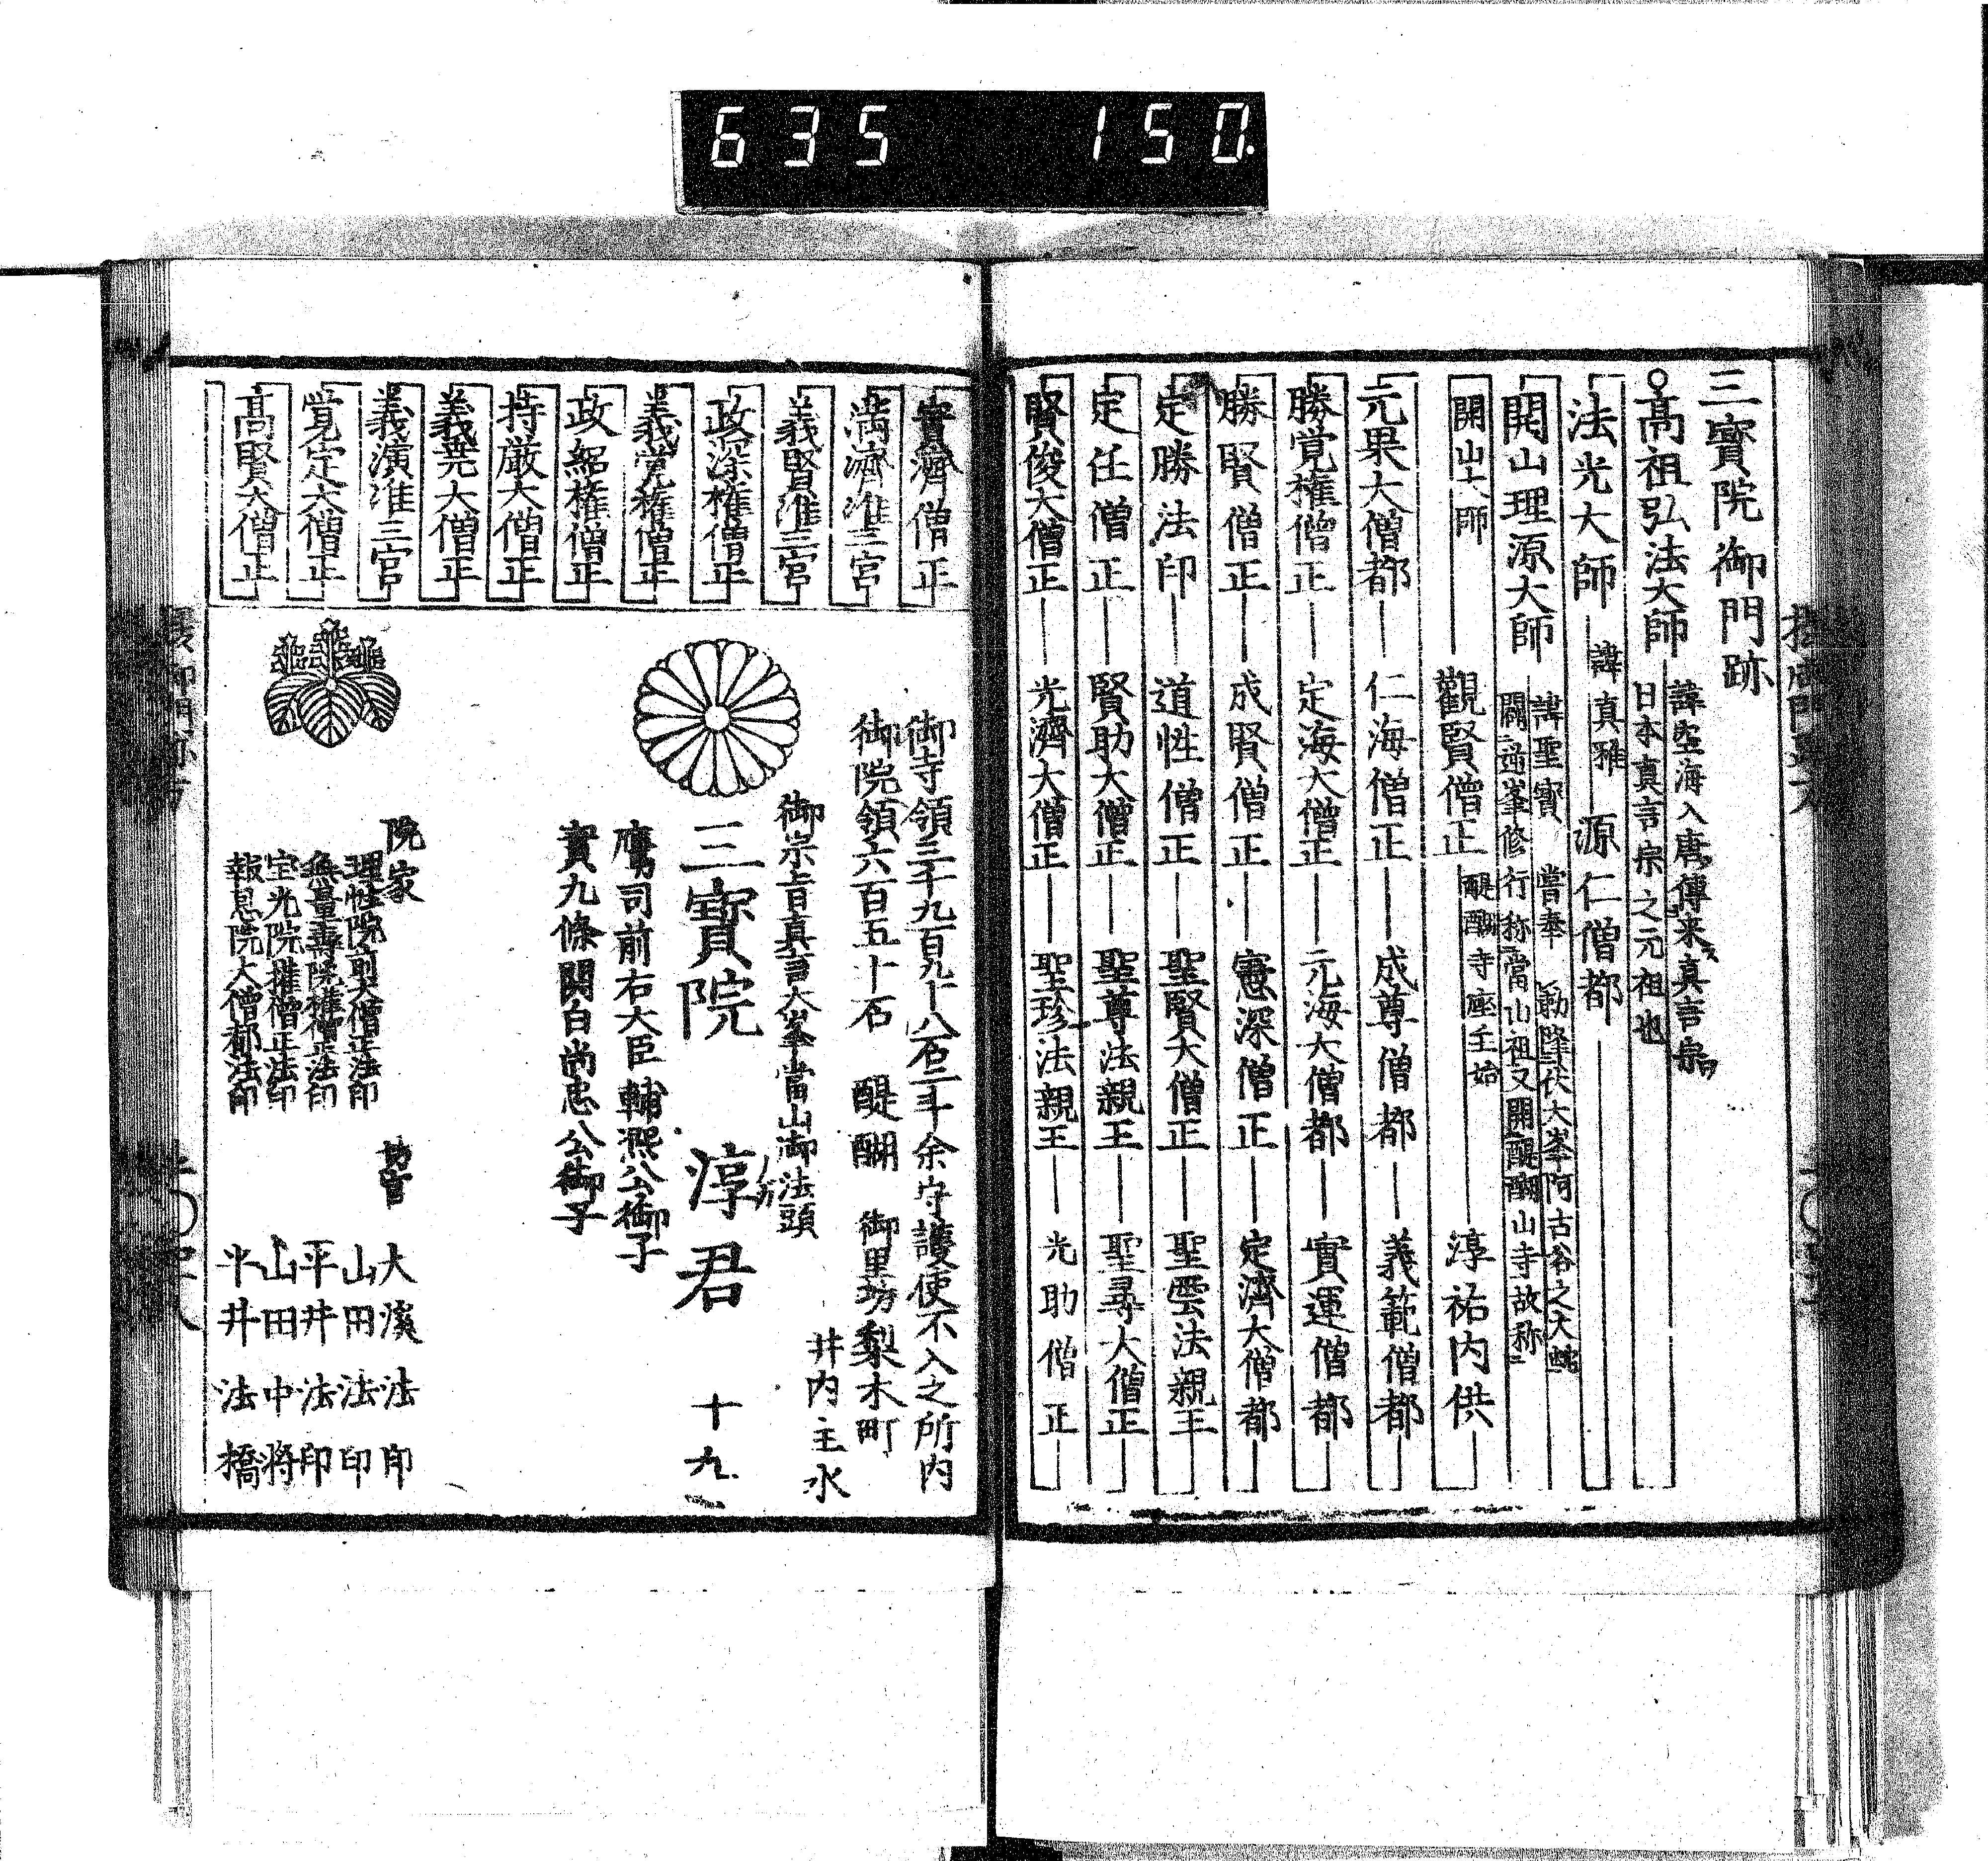 635 150.
三寳院御門跡
高祖弘法大師
諱空海入唐傳来真言宗
日本真言宗之元祖也
法光大師 諱真雅 源仁僧都
開山理源大師
諱聖寳 嘗奉 勅降伏大峯阿古谷之大蛇
開逆峯修行称當山祖又開醍醐山寺故称
開山大師 觀賢僧正 醍醐寺座主始 淳祐内供
元果大僧都 仁海僧正 成尊僧都 義範僧都
勝覚権僧正 定海大僧正 元海大僧都 實運僧都
勝賢僧正 成賢僧正 憲深僧正 定濟大僧都
定勝法印 道性僧正 聖賢大僧正 聖雲法親王
定任僧正 賢助大僧正 聖尊法親王 聖尋大僧正
賢俊大僧正 光濟大僧正 聖珍法親王 光助僧正
實濟僧正
満濟准三宮
義賢准三宮
政深権僧正
義覚権僧正
政紹権僧正
持厳大僧正
義尭大僧正
義演准三宮
覚定大僧正
高賢大僧正
御寺領三千九百九十八石二斗余守護使不入之所内
御院領六百五十石 醍醐 御里坊梨木町
井内主水
御宗旨真言大峯當山御法頭
三寳院 淳君 十九
鷹司前右大臣輔凞公御子
實九條関白尚忠公御子
院家
理性院前大僧正法印
無量壽院権僧正法印
宝光院権僧正法印
報恩院大僧都法印
坊官
大溪法印
山田法印
平井法印
山田中将
平井法橋